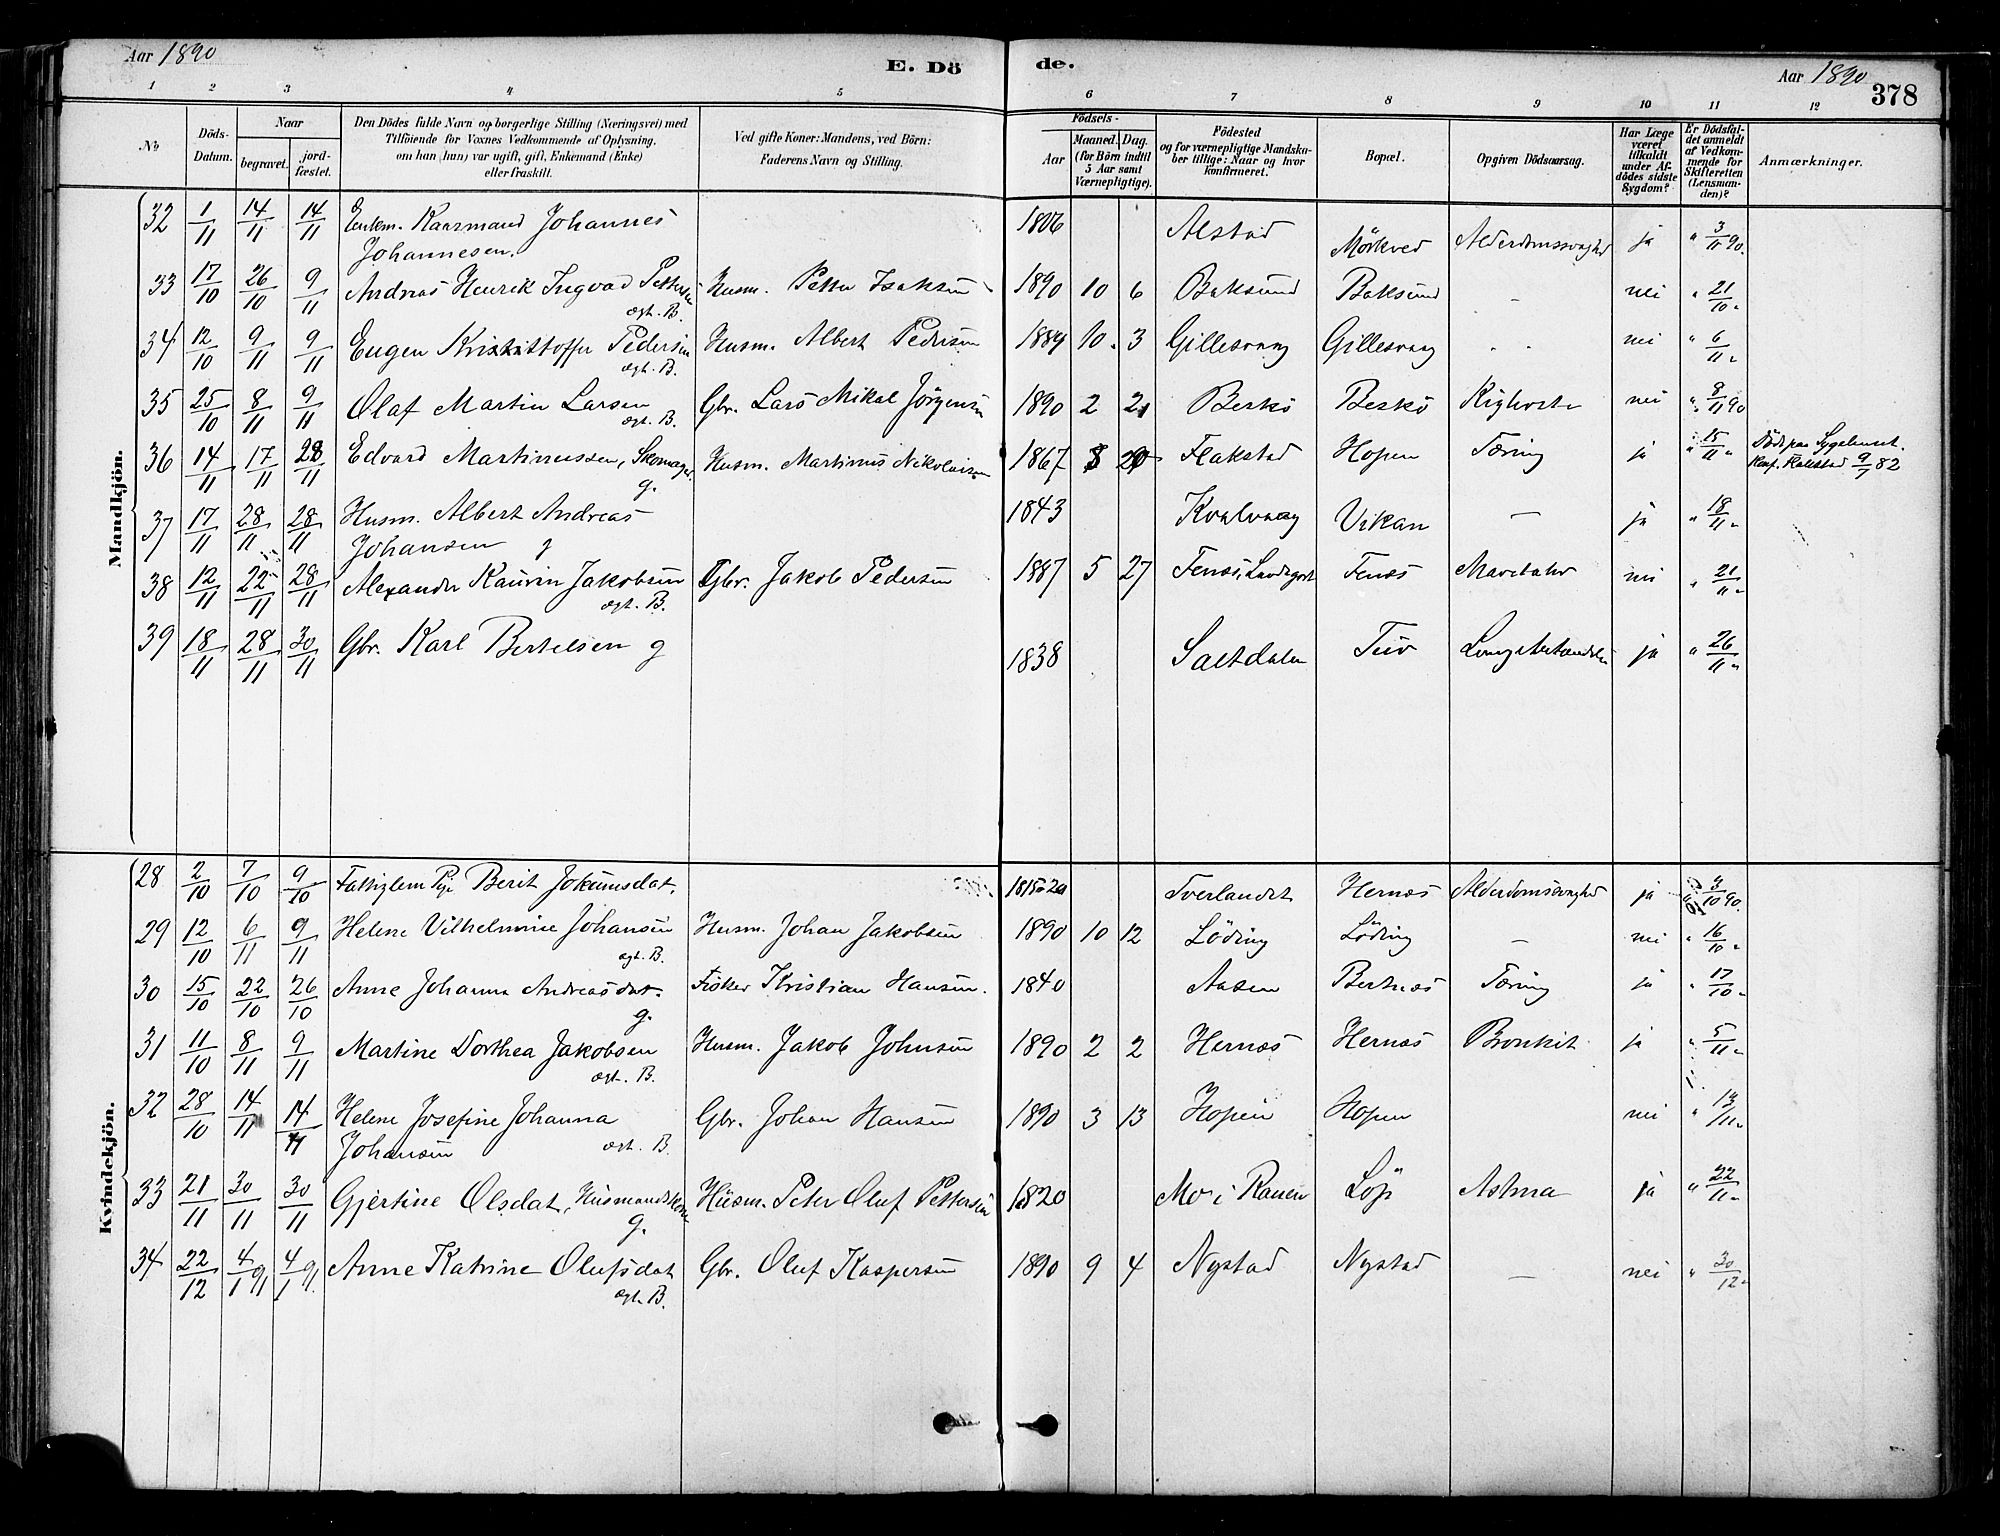 Aar 1890
E. Dö
de.
Aar 1890
378
1 2 3 4 5 6 7 8 9 10 11 12
No
Döds-Datum.
Naar
begravet.
jord-fæstet.
Den Dödes fulde Navn og borgerlige Stilling (Næringsvei) med
Tilföiende for Voxnes Vedkommende af Oplysning,
om han (hun) var ugift, gift, Enkemand (Enke)
eller fraskilt.
Ved gifte Koner: Mandens, ved Börn:
Faderens Navn og Stilling.
Födsels-
Aar
Maaned. Dag.
(for Börn indtil
5 Aar samt
Værnepligtige).
Födested
og for værnepligtige Mandska-
ber tillige: Naar og hvor
konfirmeret.
Bopæl.
Opgiven Dödsaarsag.
Har Læge
været
tilkaldt
under Af-
dödes sidste
Sygdom?
Er Dödsfal-
det anmeldt
af Vedkom-
mende for
Skifteretten
(Lensman-
den)?
Anmærkninger.
Mandkjön.
32 1/11 14/11 14/11 Enkm. Kaarmand Johannes 1806 Alstad Mörkved Alderdomssvaghed ja " 3/11 90.
Johannesen.
33 17/10 26/10 9/11 Andreas Henrik Ingvad Pettersen Husm. Petter Isaksen 1890 10 6 Baksund Baksund - nei " 21/10 "
ægt. B.
34 12/10 9/11 9/11 Eugen Kristoffer Pedersen Husm. Albert Pedersen 1889 10 3 Gillesvaag Gillesvaag nei " 6/11 "
ægt. B.
35 25/10 8/11 9/11 Olaf Martin Larsen Gbr. Lars Mikal Jörgensen 1890 2 21 Beskö Beskö Kighoste nei " 8/11 90
ægt. B.
36 14/11 17/11 28/11 Edvard Martinussen, Skomager Husm. Martinus Nikolaisen 1867 8 Flakstad Hopen Tæring ja " 15/11 " Död paa Sygehuset.
g. Konf. 9/7 82
37 17/11 28/11 28/11 Husm. Albert Andreas 1843 Kvalvaag Vikan - ja " 18/11 "
Johansen g
38 12/11 22/11 28/11 Alexander Kaurin Jakobsen Gbr. Jakob Pedersen 1887 5 27 Fenæs, Fenæs nei " 21/11 "
ægt. B.
39 18/11 28/11 30/11 Gbr. Karl Bertelsen g 1838 Saltdalen Tuv Lungebetændelse ja " 26/11 "
Kvindekjön.
28 2/10 7/10 9/10 Fattiglem Pige Berit Jokumsdat. 1815 Tverlandet Hernæs Alderdomssvaghed ja 3/10 90.
29 12/10 6/11 9/11 Helene Vilhelmine Johansen Husm. Johan Jakobsen 1890 10 12 Löding Löding - nei " 16/10 "
ægt. B.
30 15/10 22/10 26/10 Anne Johanna Andreasdat. Fisker Kristian Hansen. 1840 Aasen Bertnæs Tæring ja " 17/10 "
g.
31 11/10 8/11 9/11 Martine Dorthea Jakobsen Husm. Jakob Johnsen 1890 2 2 Hernæs Hernæs Bronkit ja " 5/11 "
ægt. B.
32 28/10 14/11 14/11 Helene Josefine Johanna Gbr. Johan Hansen 1890 3 13 Hopen Hopen nei " 13/11 "
Johansen ægt. B.
33 21/11 30/11 30/11 Gjertine Olsdat, Husmandskone Husm. Peter Oluf Pettersen 1820 Mo i Ranen Löp Astma ja " 22/11 "
g.
34 22/12 4/1 91 4/1 91. Anne Katrine Olufsdat Gbr. Oluf Kaspersen 1890 9 4 Nystad Nystad - nei " 30/12 "
ægt. B.